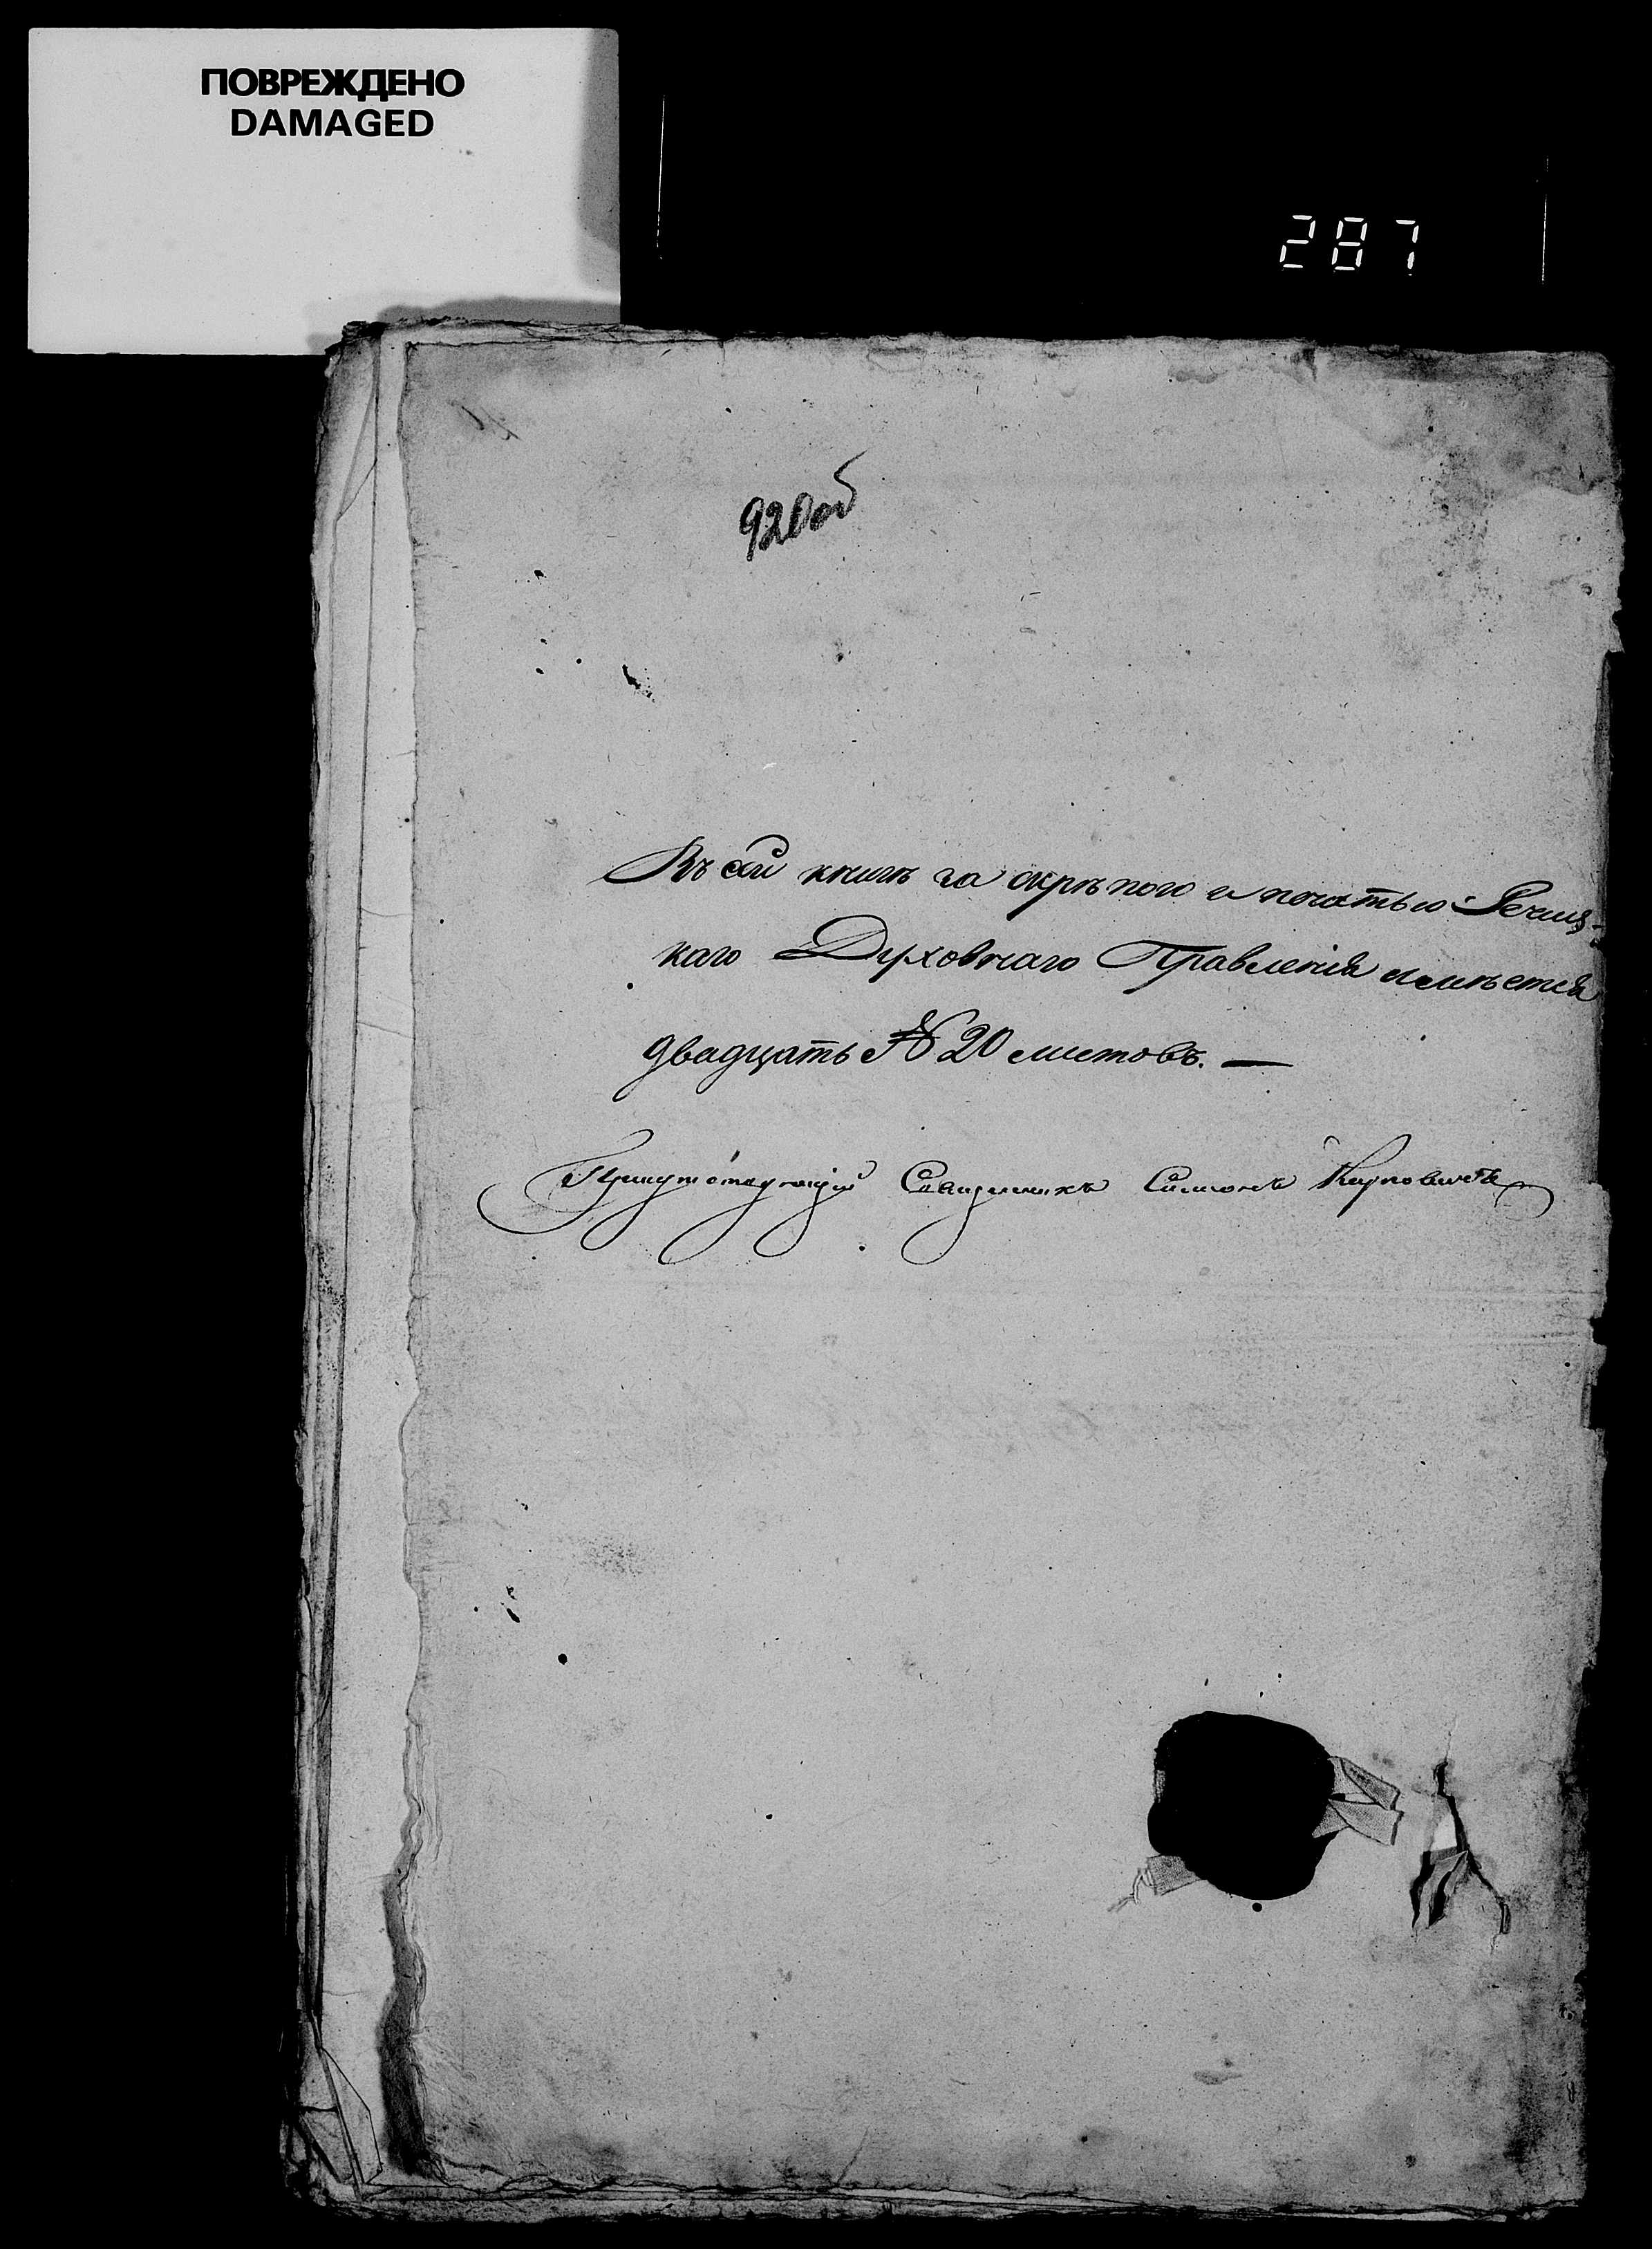 ПОВРЕЖДЕНО
DAMAGED
287
920об
Въ сей книгѣ за скрѣпою и печатью Речиц-
каго Духовнаго Правленія имѣется
двадцать № 20 листовъ. —
Присутствующій Священникъ Симонъ Карповичъ